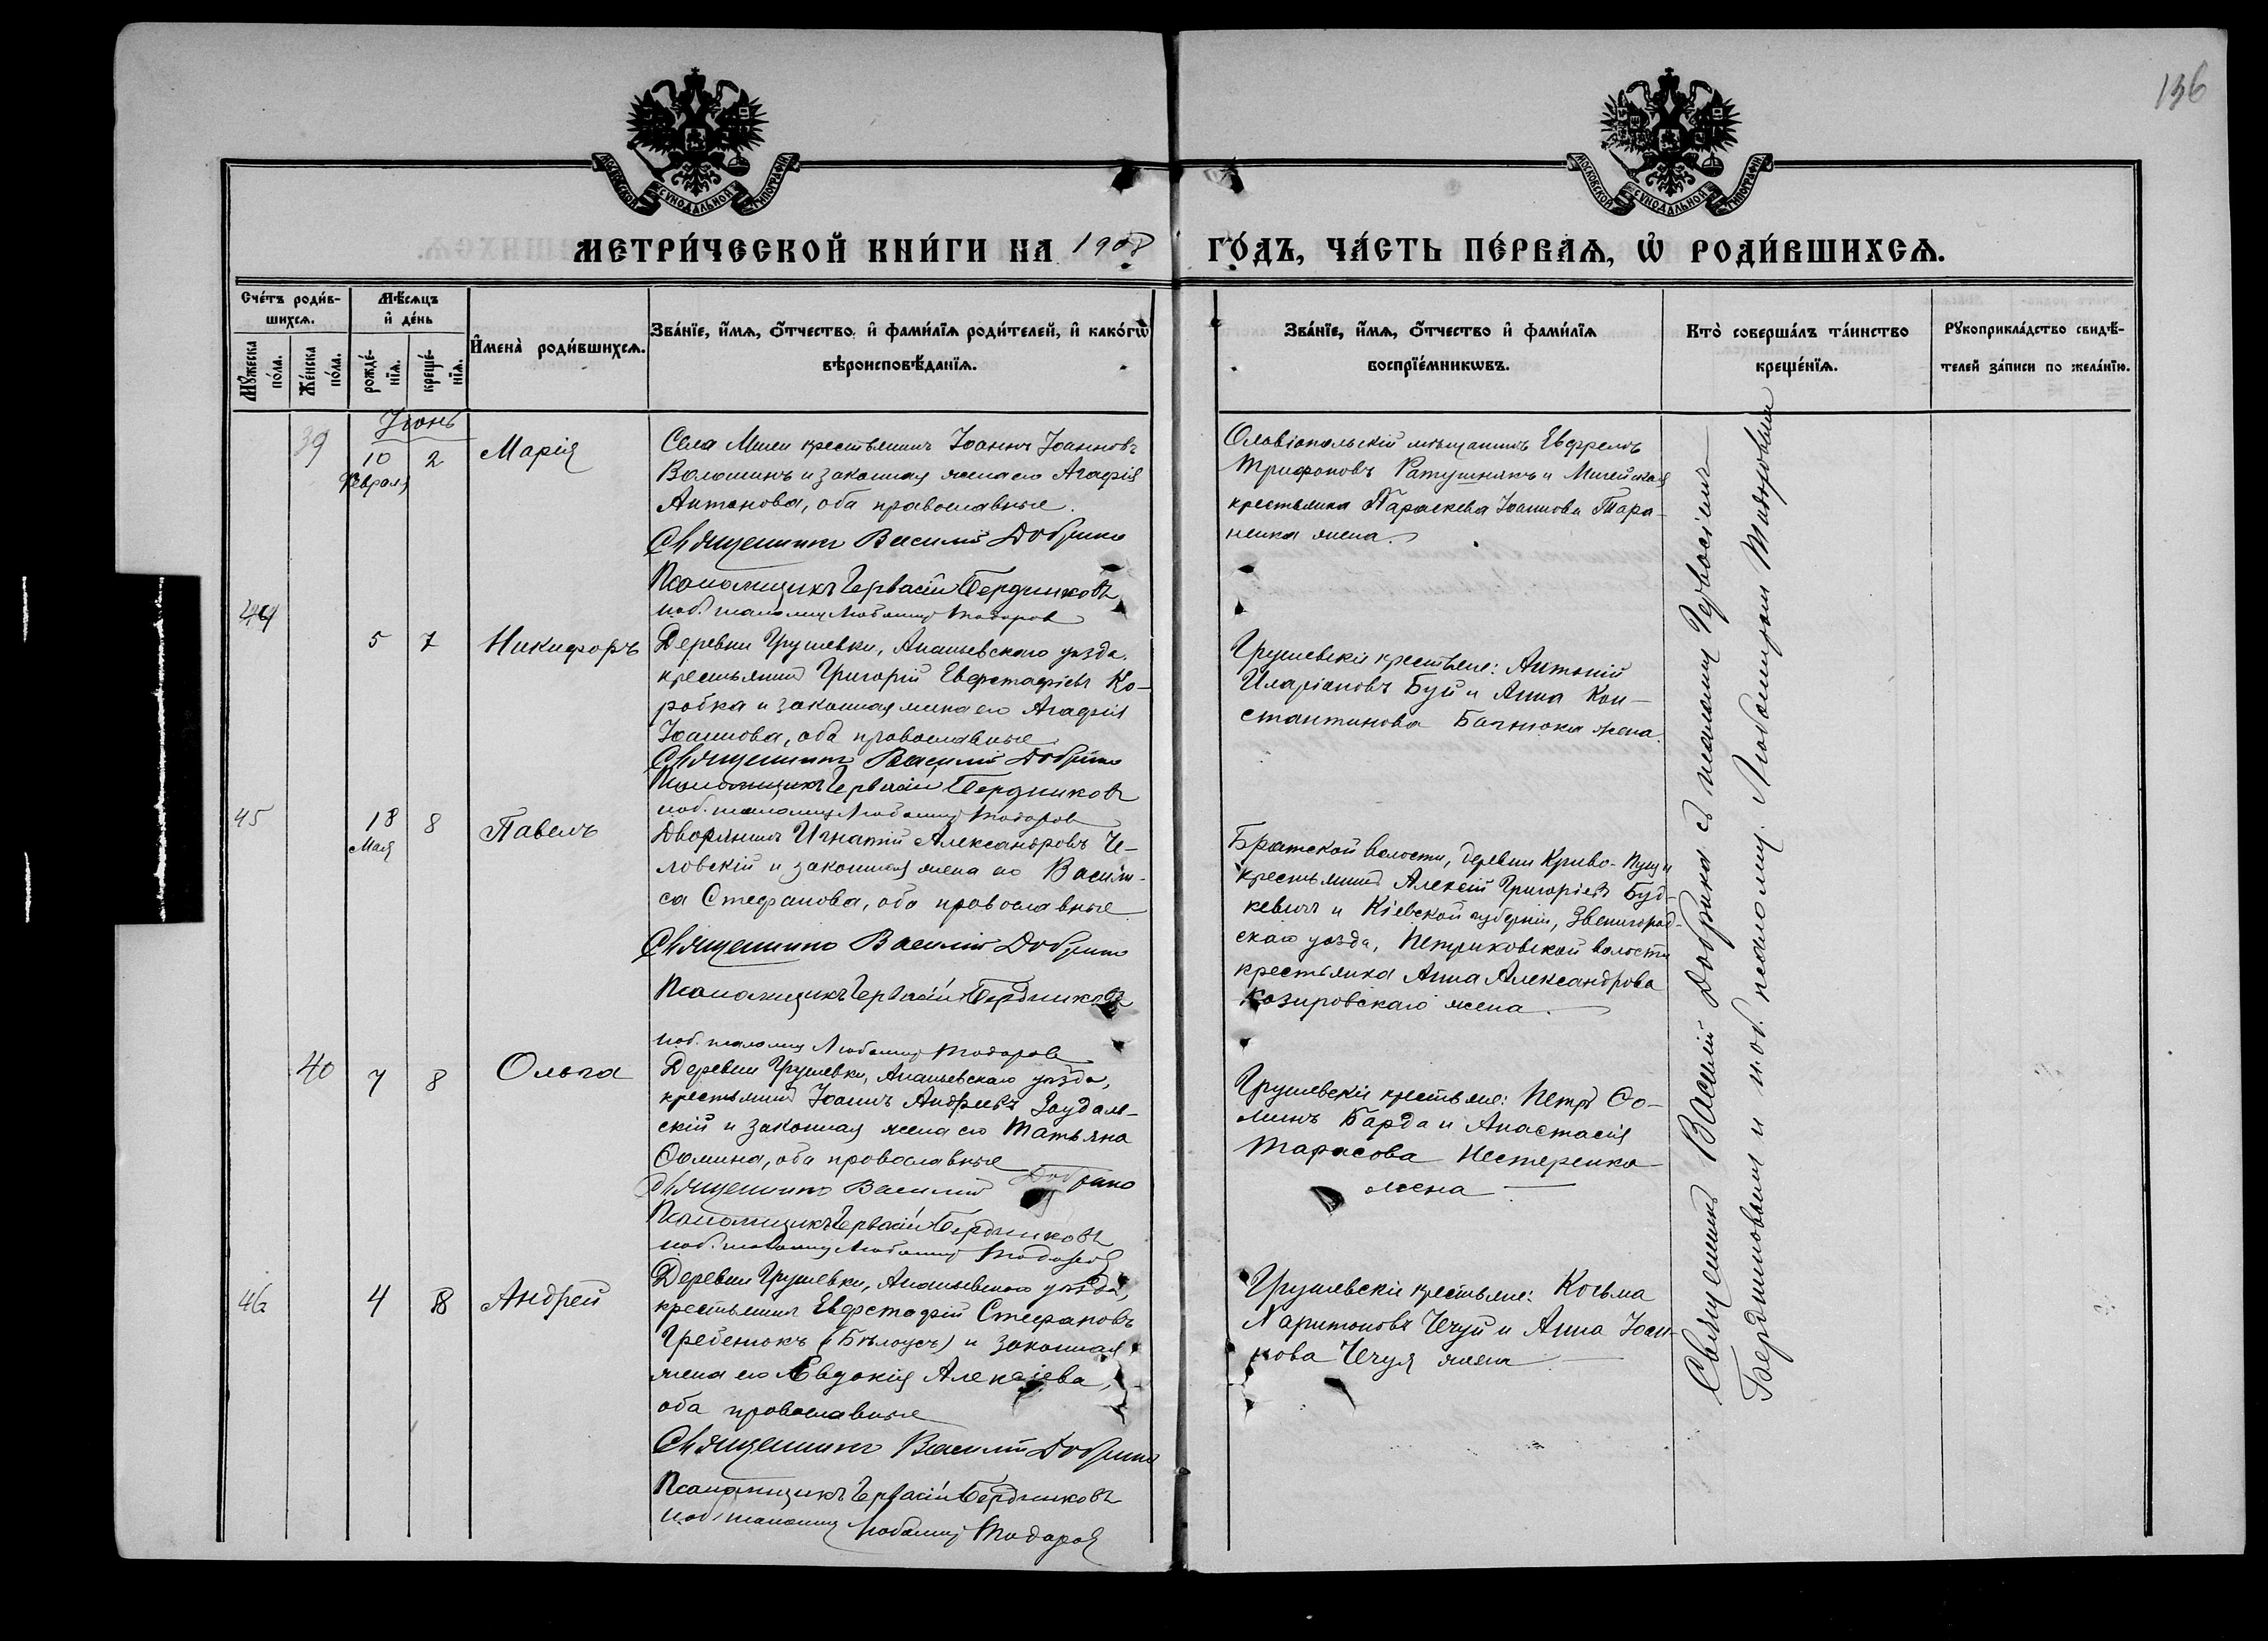 136
МОСКОВСКОЙ СѴНОДАЛЬНОЙ ТИПОГРАФІИ
МОСКОВСКОЙ СѴНОДАЛЬНОЙ ТИПОГРАФІИ
МЕТРИ́ЧЕСКОЙ КНИ́ГИ НА 1908 ГО́ДЪ, ЧА́СТЬ ПЕ́РВАѦ, Ѡ҆ РОДИ́ВШИХСѦ.
Сче́тъ роди́в-
шихсѧ.
Мѣ́сѧцъ
и҆ де́нь
Мꙋ́жеска по́ла.
Же́нска по́ла.
рожде́-
нїѧ.
креще́-
нїѧ.
И҆мена̀ роди́вшихсѧ.
Зва́нїе, и҆́мѧ, ѻ҆́тчество, и҆ фами́лїѧ роди́телей, и҆ како́гѡ
вѣроисповѣ́данїѧ.
Зва́нїе, и҆́мѧ, ѻ҆́тчество и҆ фами́лїѧ
воспрїе́мникѡвъ.
Кто̀ соверша́лъ та́инство
креще́нїѧ.
Рꙋкоприкла́дство свидѣ́-
телей за́писи по жела́нїю.
Іюнь
39
10
Февраля
2
Марія
Села Мигеи крестьянинъ Іоаннъ Іоанновъ
Волошинъ и законная жена его Агафія
Антонова, оба православные.
Священникъ Василій Добрино
Псаломщикъ Гервасій Бердниковъ
и.об. псаломщ. Любомиръ Тодоровъ
Ольвіопольскій мѣщанинъ Евфремъ
Трифоновъ Ратушнякъ и Мигейская
крестьянка Параскева Іоаннова Тара-
ненка жена.
44
5
7
Никифоръ
Деревни Грушевки, Ананьевскаго уѣзда
крестьянинъ Григорій Евфстафіевъ Ко-
робка и законная жена его Агафія
Іоаннова, оба православные
Священникъ Василій Добрино
Псаломщикъ Гервасій Бердниковъ
и.об. псаломщ. Любомиръ Тодоровъ
Грушевскіе крестьяне: Антоній
Иларіоновъ Буй и Анна Кон-
стантинова Багнюка жена.
45
18
Мая
8
Павелъ
Дворянинъ Игнатій Александровъ Че-
ловскій и законная жена его Васили-
са Стефанова, оба православные
Священникъ Василій Добрино
Псаломщикъ Гервасій Бердниковъ
и.об. псаломщ. Любомиръ Тодоровъ
Братской волости, деревни Криво-Пущи
крестьянинъ Алексій Григоріевъ Буд-
кевичъ и Кіевской губерніи, Звенигород-
скаго уѣзда, Петриковской волости
крестьянка Анна Александрова
Козировскаго жена.
40
7
8
Ольга
Деревни Грушевки, Ананьевскаго уѣзда,
крестьянинъ Іоаннъ Андреевъ Заудаль-
скій и законная жена его Татьяна
Фомина, оба православные
Священникъ Василій Добрино
Псаломщикъ Гервасій Бердниковъ
и.об. псаломщ. Любомиръ Тодоровъ
Грушевскіе крестьяне: Петръ Фо-
минъ Барда и Анастасія
Тарасова Нестеренка
жена
46
4
8
Андрей
Деревни Грушевки, Ананьевскаго уѣзда,
крестьянинъ Евфстафій Стефановъ
Гребенюкъ (Бѣлоусъ) и законная
жена его Евдокія Алексіева,
оба православные
Священникъ Василій Добрино
Псаломщикъ Гервасій Бердниковъ
и.об. псаломщ. Любомиръ Тодоровъ
Грушевскіе крестьяне: Косьма
Харитоновъ Чечуй и Анна Іоан-
нова Чечуя жена.
Священникъ Василій Добрино съ псаломщ. Гервасіемъ
Бердниковымъ и и.об. псаломщ. Любомиромъ Тодоровымъ